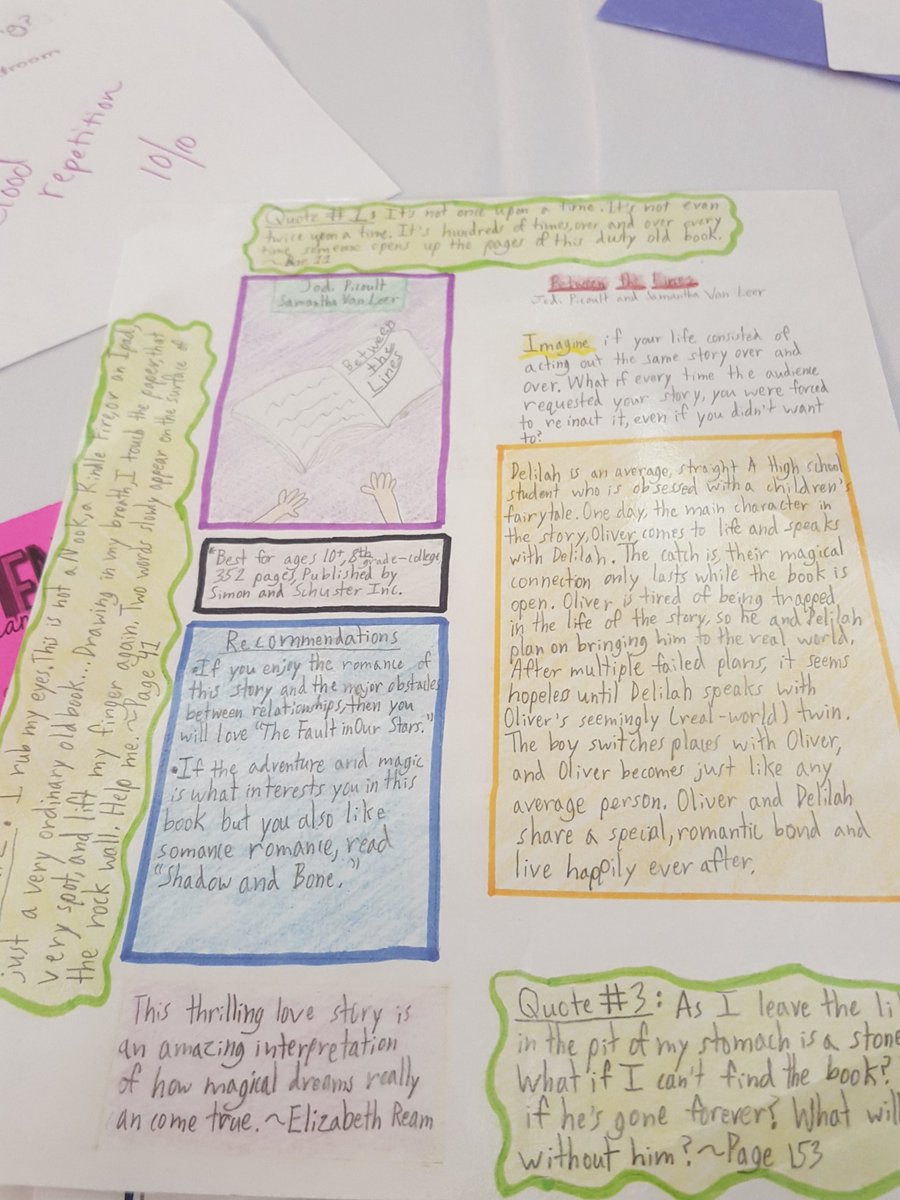 repetition
10/10
Quote #1: It's not once upon a time. It's not even
twice upon a time. It's hundreds of times, over and over every
time someone opens up the pages of this dusty old book.
Jodi Picoult
Samantha Van Leer
Between
the
Lines
Between the Lines
Jodi Picoult and Samantha Van Leer
Imagine if your life consisted of
acting out the same story over and
over. What if every time the audience
requested your story, you were forced
to reinact it, even if you didn't want
to?
I rub my eyes. This is not a Nook, a Kindle Fire, or an Ipad,
just a very ordinary old book... Drawing in my breath, I touch the paper, that
very spot, and lift my finger again. Two words slowly appear on the surface of
the rock wall. Help me. ~Page 41
*Best for ages 10+, 8th grade-college,
352 pages, Published by
Simon and Schuster Inc.
Recommendations
•If you enjoy the romance of
this story and the major obstacles
between relationships, then you
will love "The Fault in Our Stars."
•If the adventure and magic
is what interests you in this
book but you also like
somance romance, read
"Shadow and Bone."
Delilah is an average, straight A High school
student who is obsessed with a children's
fairytale. One day, the main character in
the story, Oliver comes to life and speaks
with Delilah. The catch is, their magical
connection only lasts while the book is
open. Oliver is tired of being trapped
in the life of the story, so he and Delilah
plan on bringing him to the real world.
After multiple failed plans, it seems
hopeles until Delilah speaks with
Oliver's seemingly (real-world) twin.
The boy switches places with Oliver,
and Oliver becomes just like any
average person. Oliver and Delilah
share a special, romantic bond and
live happily ever after.
This thrilling love story is
an amazing interpretation
of how magical dreams really
an come true. ~Elizabeth Ream
Quote #3: As I leave the li
in the pit of my stomach is a stone
What if I can't find the book?
if he's gone forever? What will
without him? ~Page 153